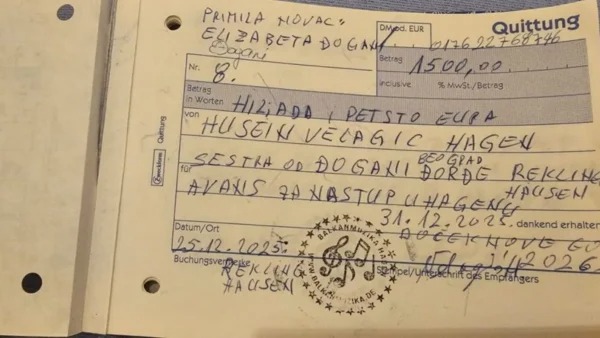 PRIMILA NOVAC"
ELIZABETA ĐOGANI
Đogani
DM od. EUR
Quittung
017622768746
Nr. 8.
Betrag 1500,00
inclusive % MwSt./Betrag
Betrag in Worten HILJADU I PETSTO EURA
von HUSEIN VELAGIC HAGEN
SESTRA OD ĐOGANI ĐORĐE REKLING
BEOGRAD
HAUSEN
für AVANS ZA NASTUP U HAGENU
31.12.2025. dankend erhalten
DOČEK NOVE
2026
Datum/Ort
25.12.2025.
Buchungsvermerke
REKLING
HAUSEN
Stempel/Unterschrift des Empfängers
BALKANMUZIKA
WWW.BALKANMUZIKA.DE
Quittung